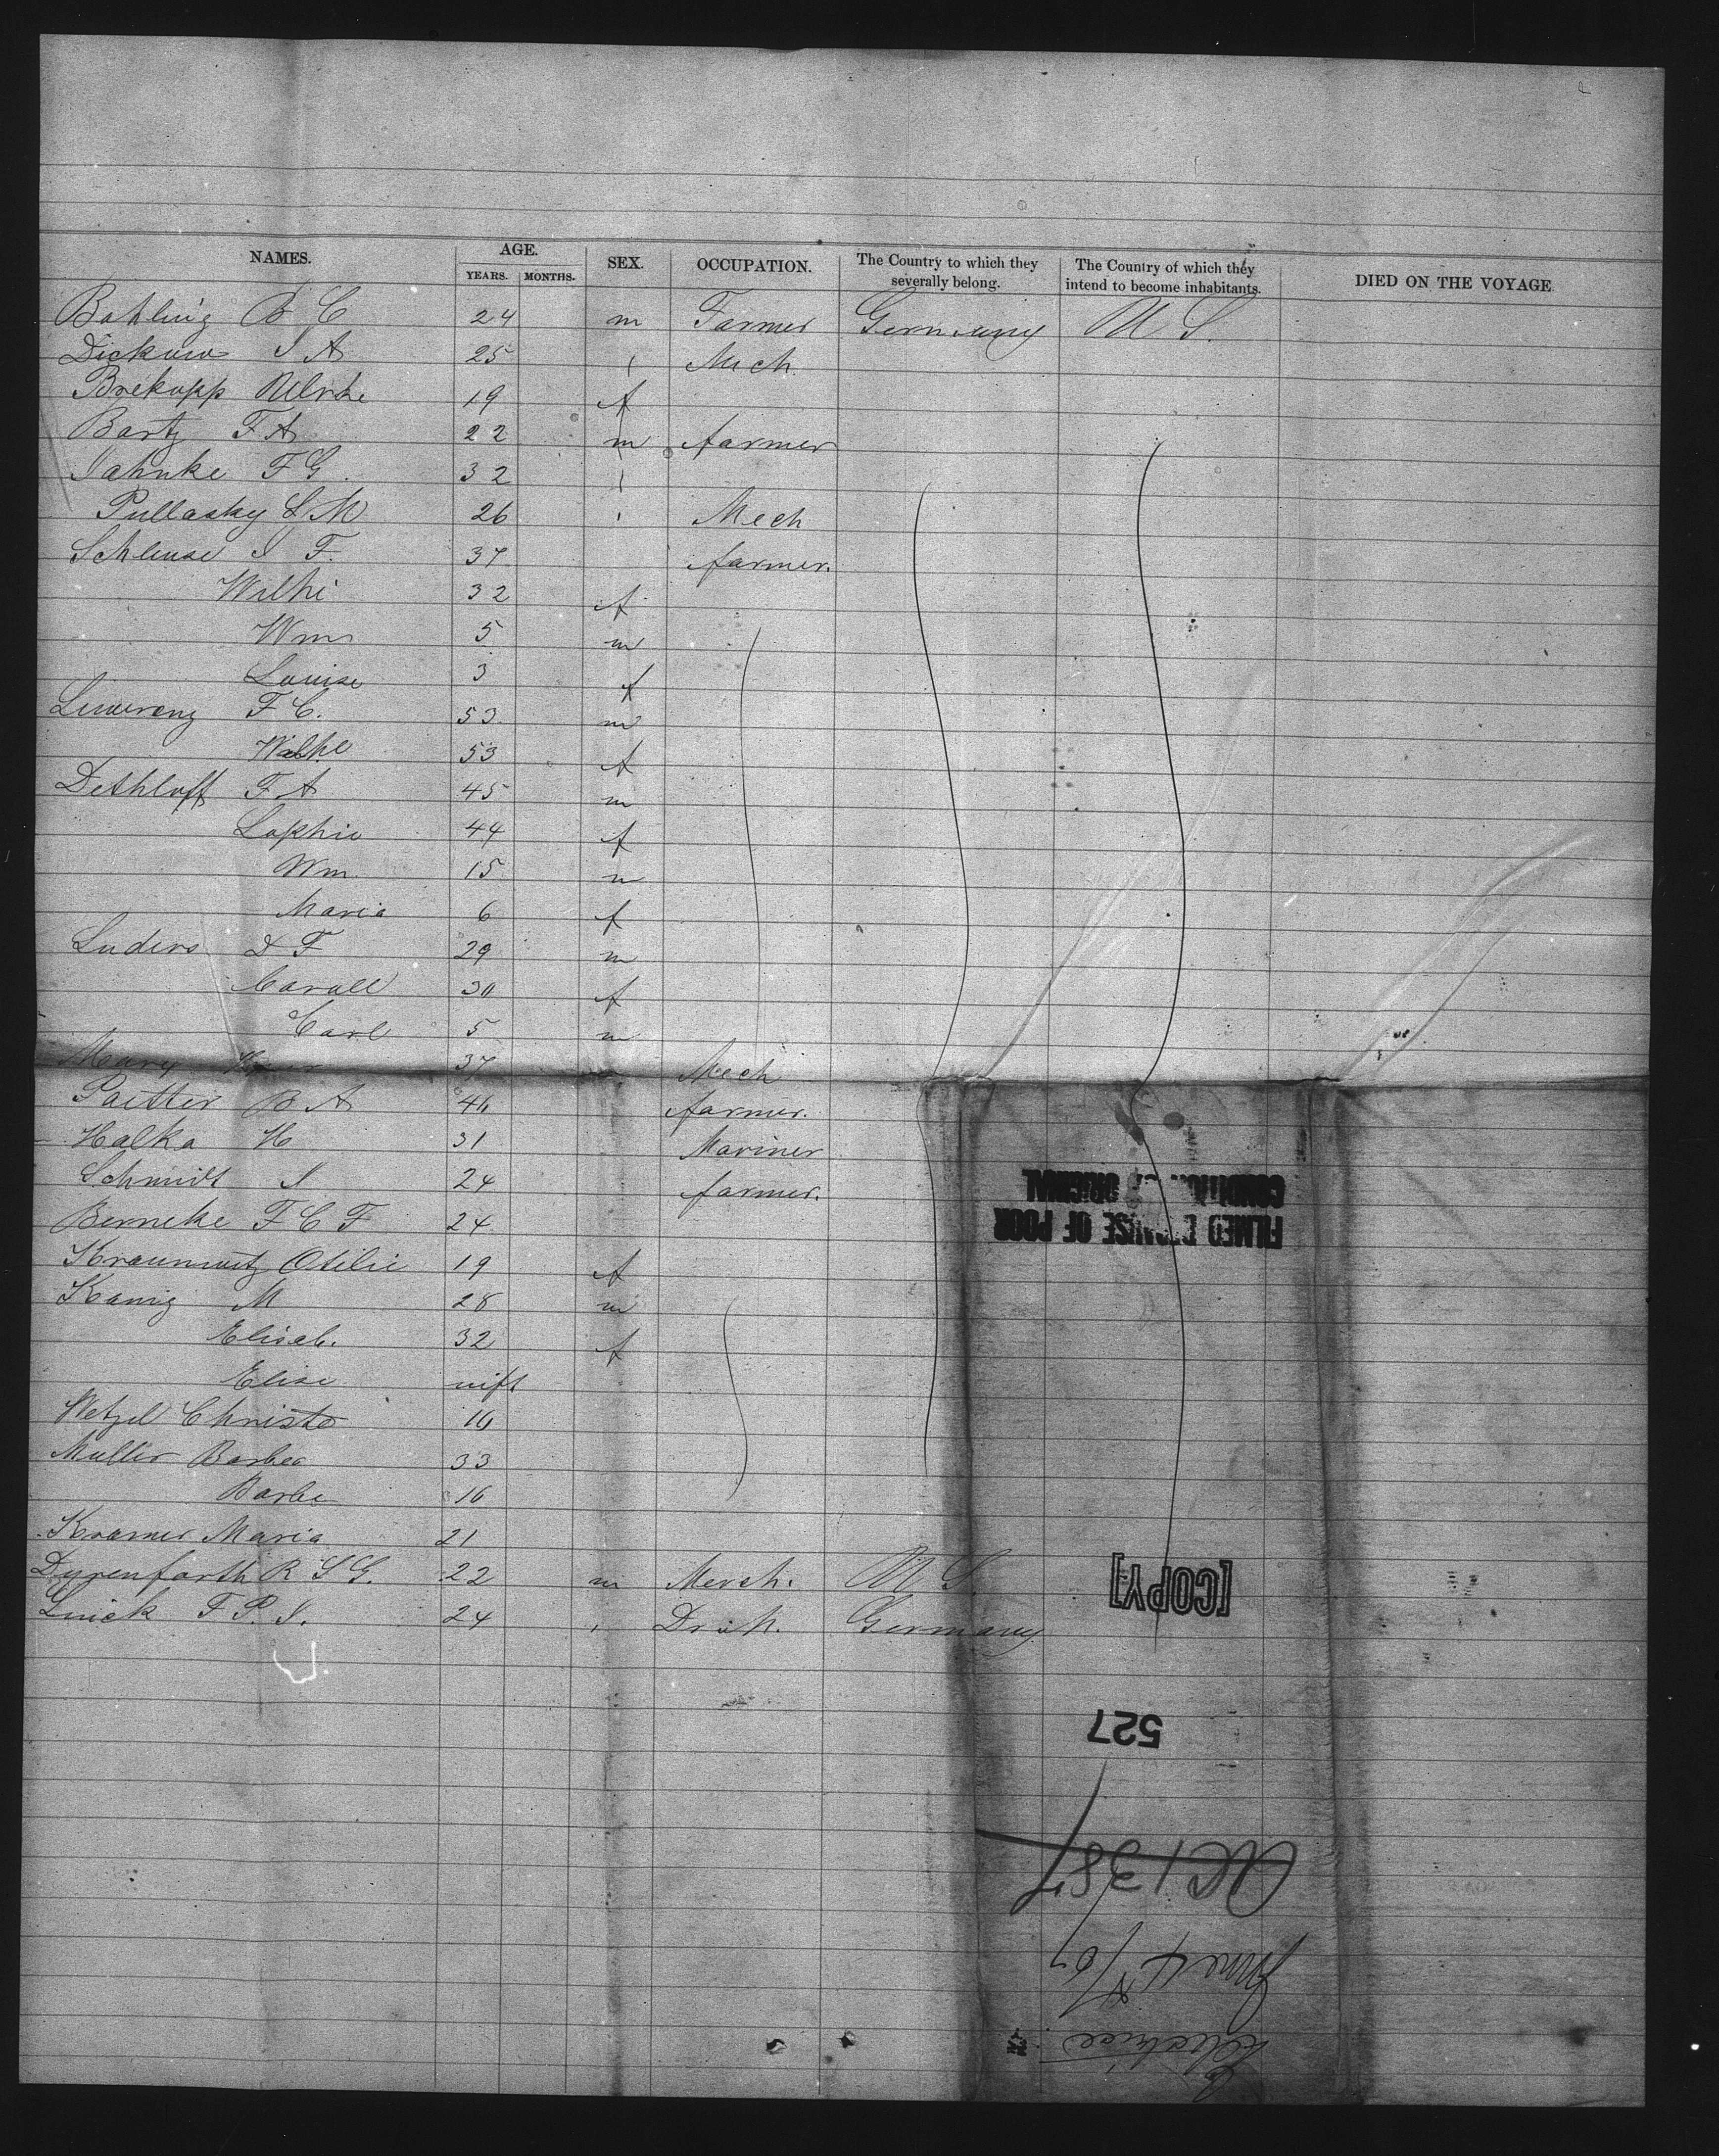 NAMES. AGE. YEARS. MONTHS. SEX. OCCUPATION. The Country to which they severally belong. The Country of which they intend to become inhabitants. DIED ON THE VOYAGE
Bohling B C 24 m Farmer Germany U S.
Dickow I A 25 " Mech.
Brekopp Ulrke 19 f
Bartz F A 22 m farmer
Jahnke F G. 32 "
Pullasky L M 26 " Mech
Schleuse I F. 37 farmer.
Wilhe 32 f
Wm 5 m
Louise 3 f
F C. 53 m
Wilhe 53 f
Dethloff F A 45 m
Sophie 44 f
Wm. 15 m
Maria 6 f
Luders D F 29 m
30 f
Carl 5 m
37 Mech
B A 46 farmer.
Halka H 31 Mariner
Schmidt I 24 farmer.
Berneke F C F 24
Otilie 19 f
Kanig M 28 m
Elisab. 32 f
Elise
Wetzel Christe 16
Muller Barbea 33
Barbe 16
Kramer Maria 21
Dyrenfarth R S G. 22 m Merch. U S.
Luick F P. I. 24 " Germany
FILMED BECAUSE OF POOR
CONDITION OF ORIGINAL
[COPY]
527
June 4/67
Electrice